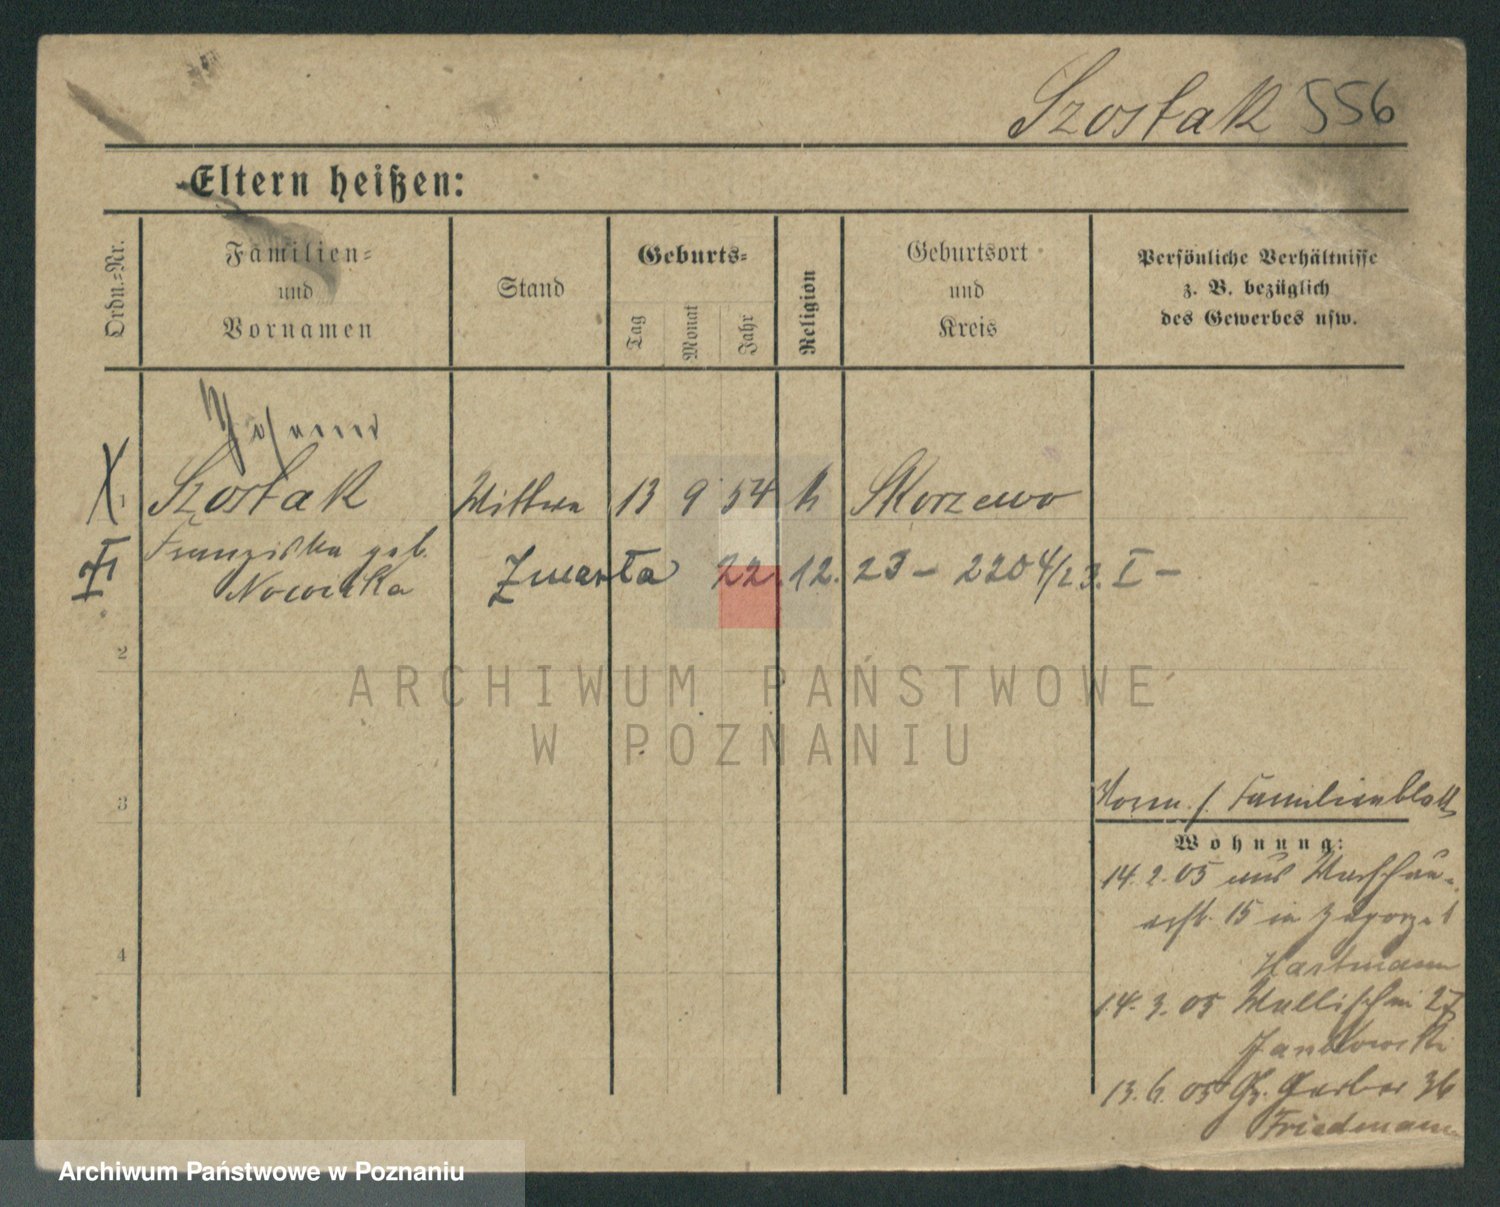 Szostak 556
Eltern heißen:
Ordn.-Nr.
Familien-
und
Vornamen
Stand
Geburts-
Tag
Monat
Jahr
Religion
Geburtsort
und
Kreis
Persönliche Verhältnisse
z. B. bezüglich
des Gewerbes usw.
Johann
1 Szostak Wittwe 13 9 54 k Skorzewo
Franziska geb.
Nowicka
Zmarła 22. 12. 23 – 2204/23. I –
2
ARCHIWUM PAŃSTWOWE
W POZNANIU
3
Familienblatt
Wohnung:
14. 2. 05 aus Warschau-
15 in
4
Hartmann
14. 3. 05 Wallischei 27
Jankowski
13. 6. 05 Gr. Gerber 36
Friedmann
Archiwum Państwowe w Poznaniu